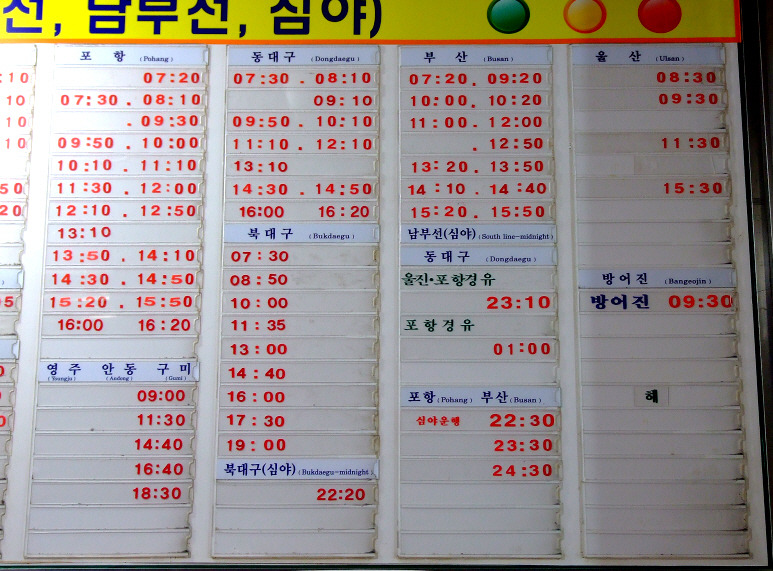 선, 남부선, 심야)
포 항 (Pohang)
07:20
07:30 . 08:10
. 09:30
09:50 . 10:00
10:10 . 11:10
11:30 . 12:00
12:10 . 12:50
13:10
13:50 . 14:10
14:30 . 14:50
15:20 . 15:50
16:00 16:20
영주 안동 구미
(Youngju) (Andong) (Gumi)
09:00
11:30
14:40
16:40
18:30
동대구 (Dongdaegu)
07:30 . 08:10
09:10
09:50 . 10:10
11:10 . 12:10
13:10
14:30 . 14:50
16:00 16:20
북대구 (Bukdaegu)
07:30
08:50
10:00
11:35
13:00
14:40
16:00
17:30
19:00
북대구(심야) (Bukdaegu-midnight)
22:20
부 산 (Busan)
07:20 . 09:20
10:00 . 10:20
11:00 . 12:00
. 12:50
13:20 . 13:50
14:10 . 14:40
15:20 . 15:50
남부선(심야) (South line-midnight)
동대구 (Dongdaegu)
울진·포항경유
23:10
포항경유
01:00
포항 (Pohang) 부산 (Busan)
심야운행 22:30
23:30
24:30
울 산 (Ulsan)
08:30
09:30
11:30
15:30
방어진 (Bangeojin)
방어진 09:30
혜